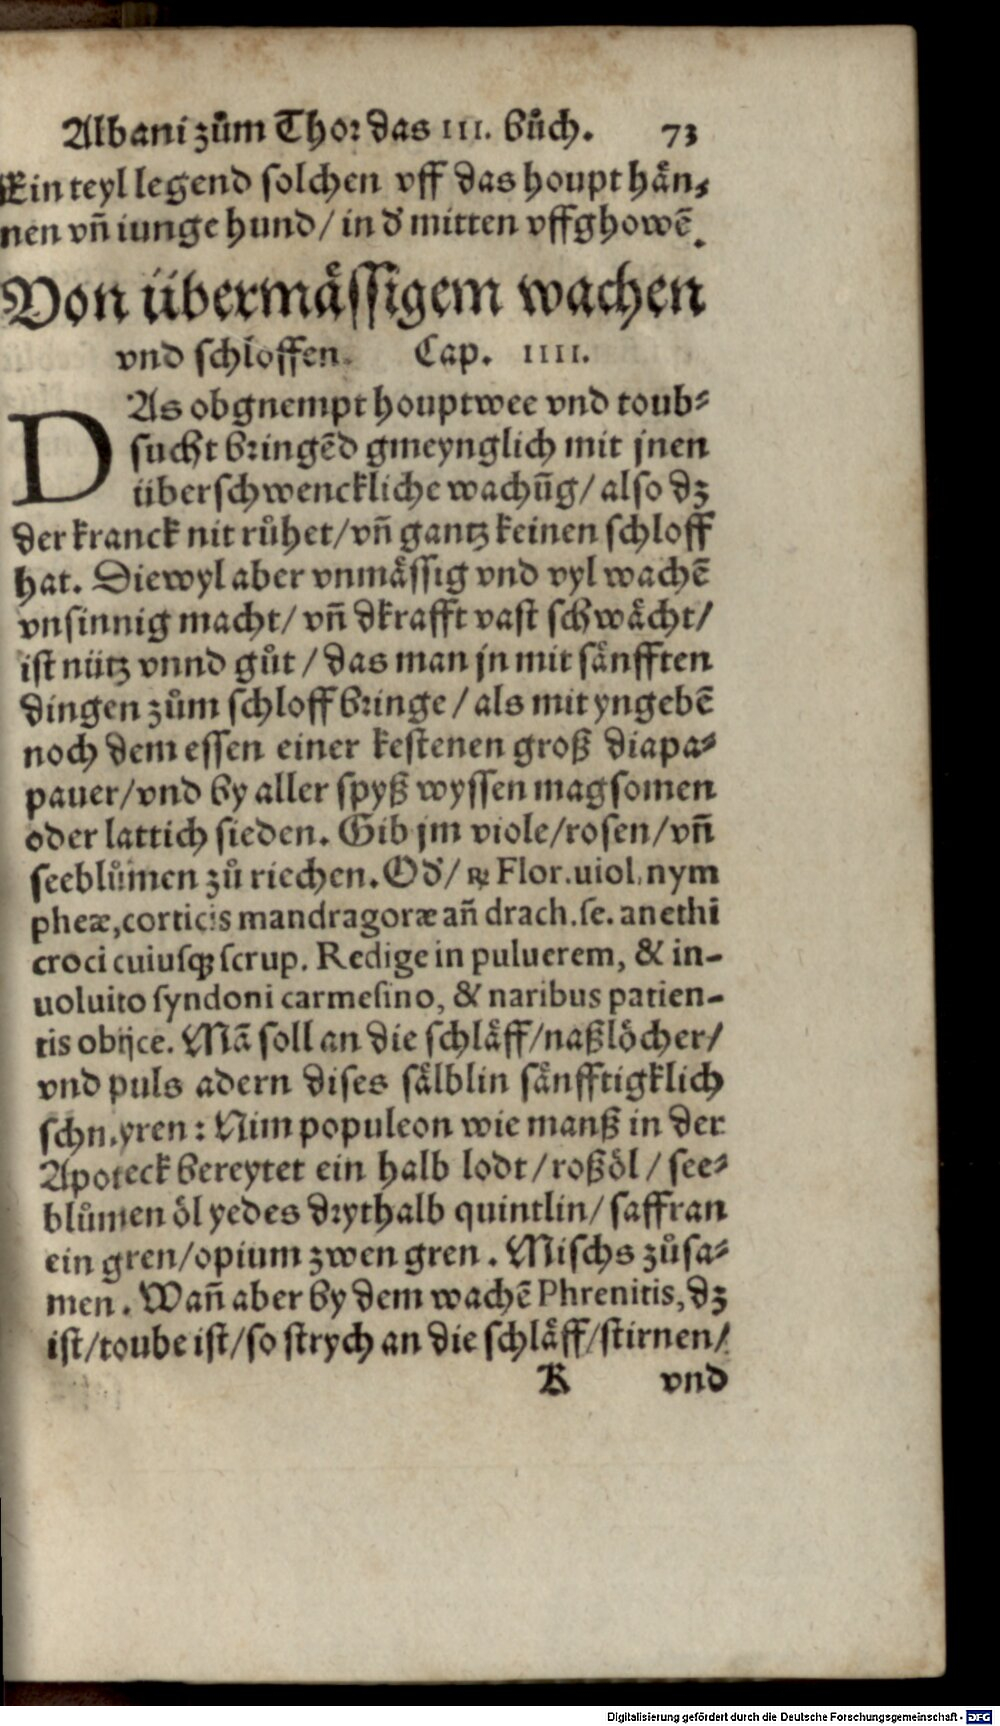 Albani zům Thor das III. bůch. 73
Ein teyl legend solchen vff das houpt hån⸗
nen vñ iunge hund/ in d' mitten vffghowē.
Von übermåssigem wachen
vnd schloffen. Cap. IIII.
DAs obgnempt houptwee vnd toub⸗
sucht bringēd gmeynglich mit jnen
überschwenckliche wachūg/ also dz
der kranck nit růhet/ vñ gantz keinen schloff
hat. Diewyl aber vnmåssig vnd vyl wachē
vnsinnig macht/ vñ dkrafft vast schwåcht/
ist nütz vnnd gůt / das man jn mit sånfften
dingen zům schloff bringe / als mit yngebē
noch dem essen einer kestenen groß diapa⸗
pauer/ vnd by aller spyß wyssen magsomen
oder lattich sieden. Gib jm viole/ rosen/ vñ
seeblůmen zů riechen. Od'/ ℞ Flor. uiol. nym
pheæ, corticis mandragoræ añ drach. se. anethi
croci cuiusq; scrup. Redige in puluerem, & in-
uoluito syndoni carmesino, & naribus patien-
tis obijce. Mā soll an die schlåff/ naßlöcher/
vnd puls adern dises sålblin sånfftigklich
schmyren: Nim populeon wie manß in der
Apoteck bereytet ein halb lodt/ roßöl / see⸗
blůmen öl yedes drythalb quintlin/ saffran
ein gren/ opium zwen gren. Mischs zůsa⸗
men. Wañ aber by dem wachē Phrenitis, dz
ist/ toube ist/ so strych an die schlåff/ stirnen/
K vnd
Digitalisierung gefördert durch die Deutsche Forschungsgemeinschaft - DFG